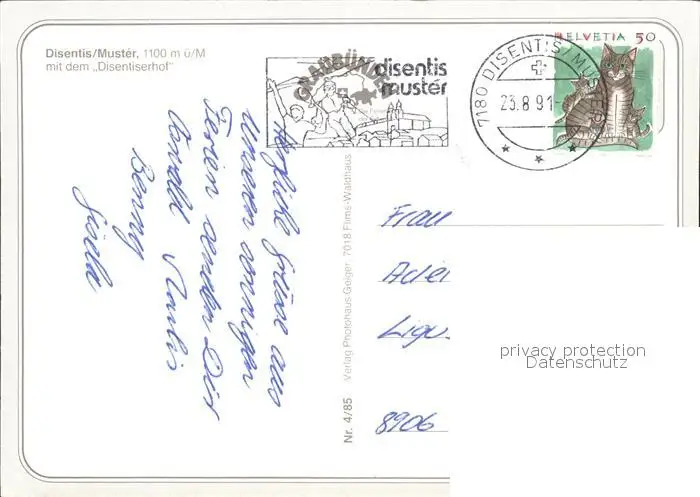 Disentis/Mustér, 1100 m ü/M
mit dem „Disentiserhof"
GRAUBÜNDEN
disentis
mustér
7180 DISENTIS/MUSTER
23.8.91-
HELVETIA 50
Herzliche Grüsse aus
unseren sonnigen
Ferien senden Dir
Benny
Gisela
Nr. 4/85 Verlag Photohaus Geiger, 7018 Flims-Waldhaus
Frau
8906
privacy protection
Datenschutz